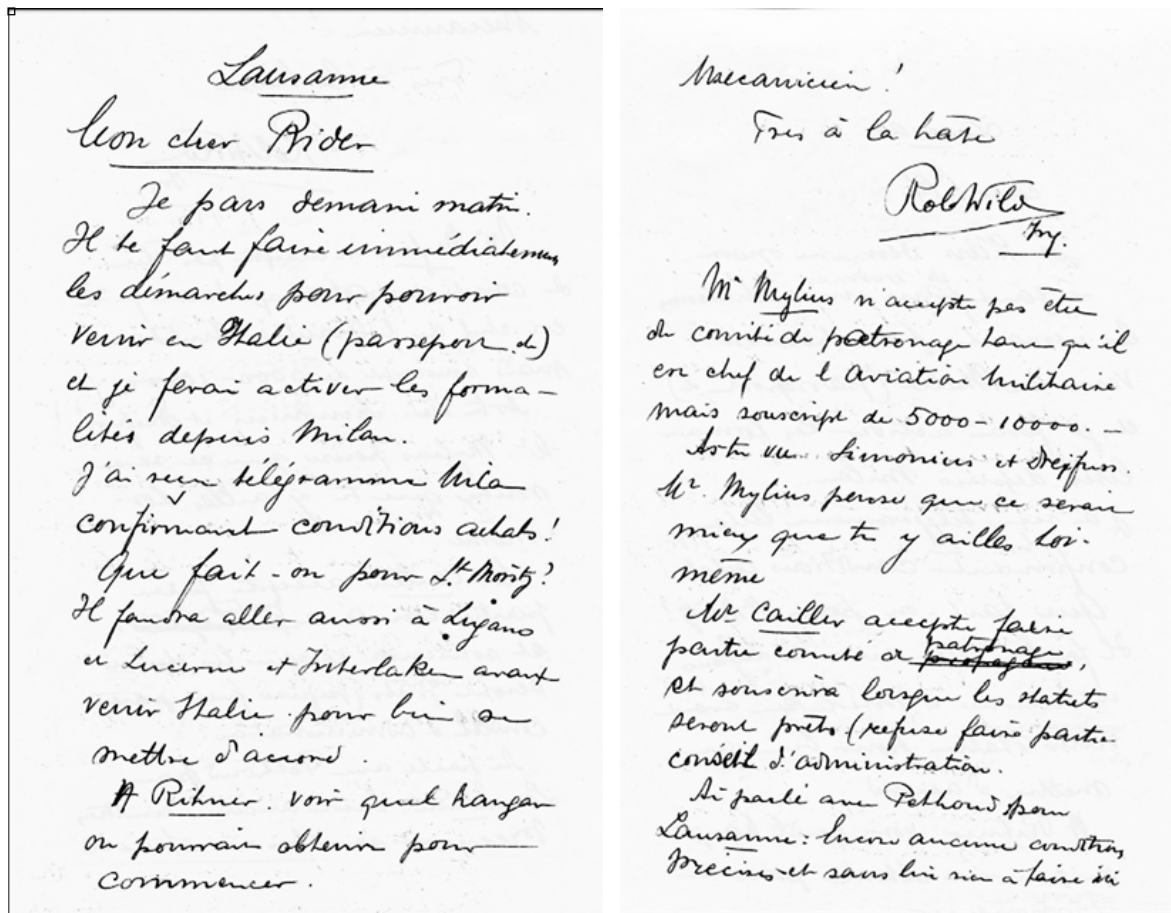 Lausanne
Mon cher Rider
Je pars demain matin.
Il te faut faire immédiatement
les démarches pour pouvoir
venir en Italie (passeport &)
et je ferai activer les forma-
lités depuis Milan.
J'ai reçu télégramme Mila
confirmant conditions achats!
Que fait-on pour St. Moritz?
Il faudra aller aussi à Lugano
et Lucerne et Interlaken avant
venir Italie pour bien se
mettre d'accord.
A Rihner voir quel hangar
on pourrait obtenir pour
commencer.
Mecanicien!
Très à la hâte
Rob Wild
Ing.
Mr Mylius n'accepte pas être
du comité de patronage tant qu'il
en chef de l'Aviation Militaire
mais souscript de 5000-10000.-
As tu vu Simonius et Dreifuss.
Mr. Mylius pense que ce serait
mieux que tu y ailles toi-
même
Mr Cailler accepte faire
partie comité de patronage,
et souscrira lorsque les statuts
seront prêts (refuse faire partie
conseil d'administration.
Ai parlé avec Pethoud pour
Lausanne: Encore aucune conditions
précises et sans lui rien à faire ici